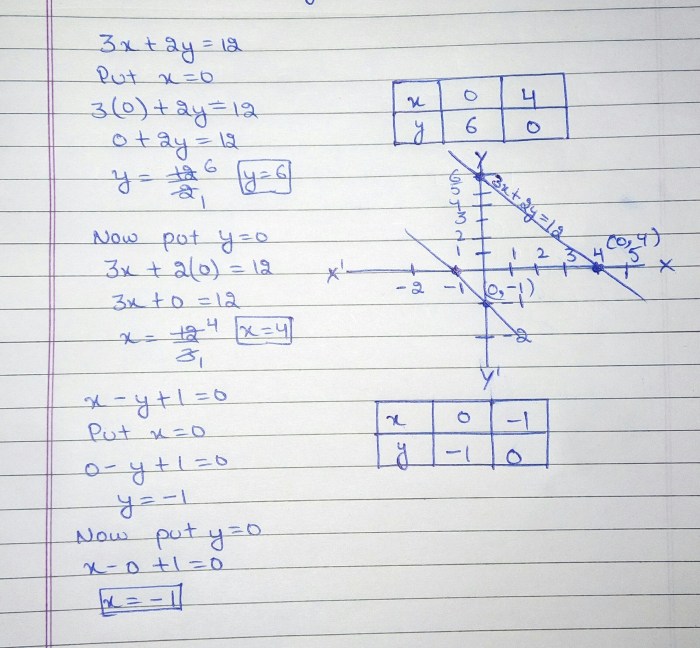 3x + 2y = 12
Put x = 0
3(0) + 2y = 12
0 + 2y = 12
y = 12 6 / 2 1 y = 6
Now put y = 0
3x + 2(0) = 12
3x + 0 = 12
x = 12 4 / 3 1 x = 4
x - y + 1 = 0
Put x = 0
0 - y + 1 = 0
y = -1
Now put y = 0
x - 0 + 1 = 0
x = -1
x 0 4
y 6 0
Y
6
5
4
3
2
1
3x + 2y = 12
(0,4)
X' -2 -1 1 2 3 4 5 X
(0,-1)
-1
-2
Y'
x 0 -1
y -1 0